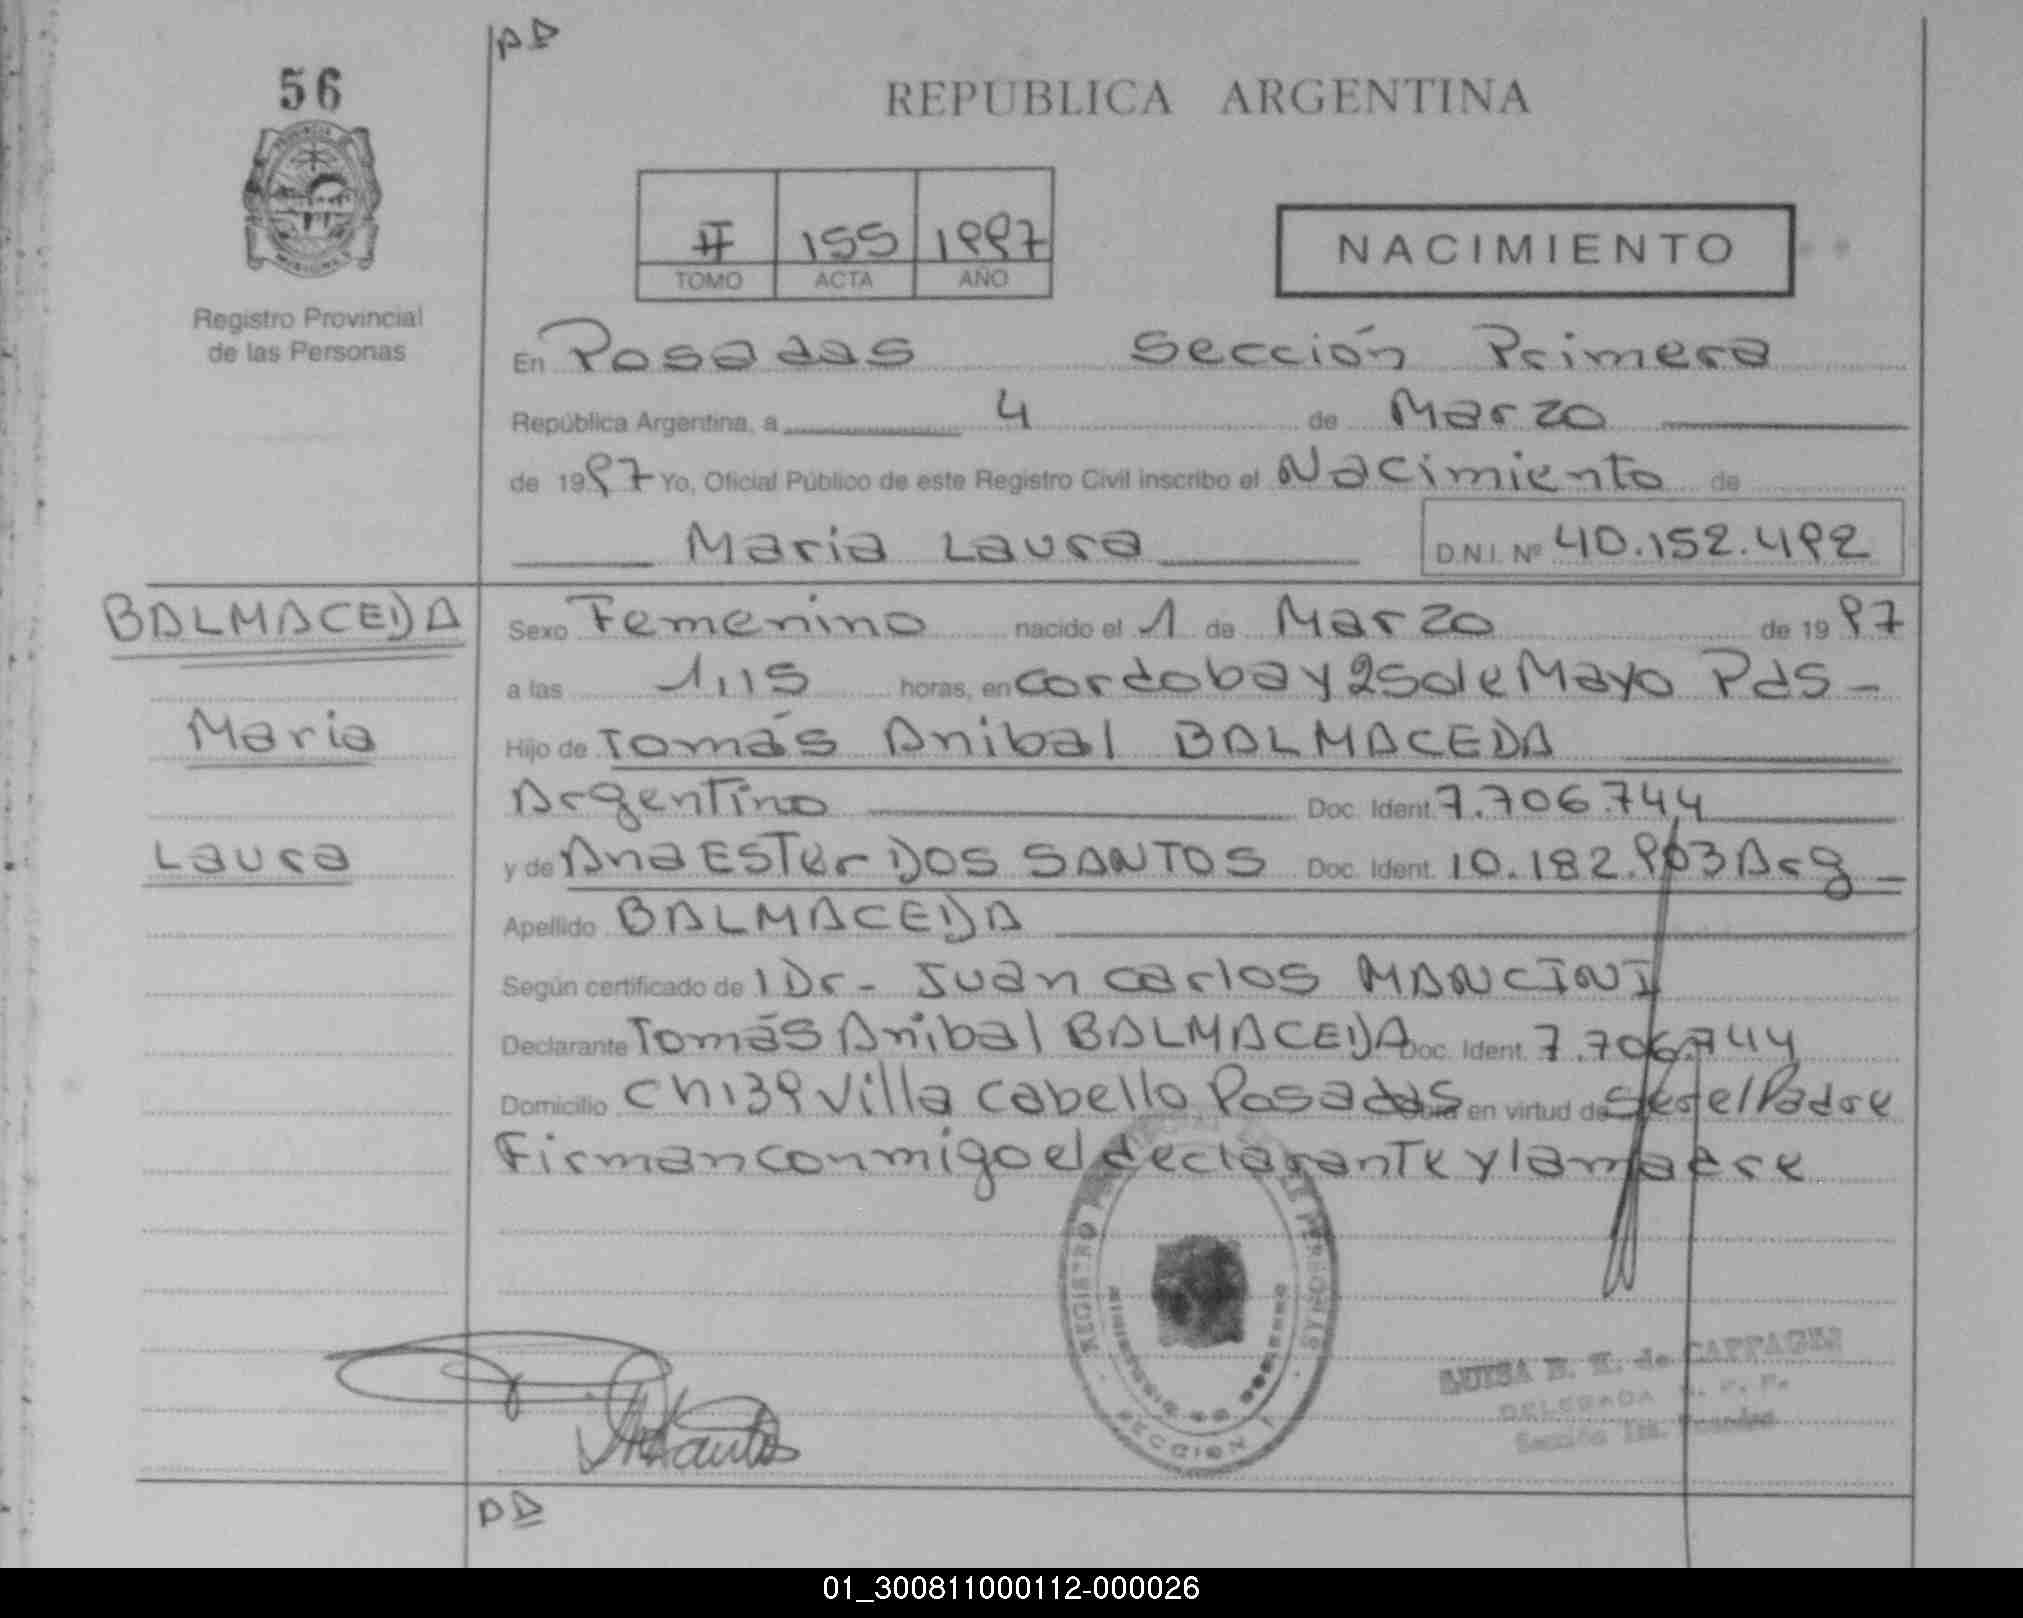 PD
56
REPUBLICA ARGENTINA
II 155 1997
TOMO ACTA AÑO
NACIMIENTO
Registro Provincial
de las Personas
En Posadas Sección Primera
República Argentina, a 4 de Marzo
de 1997 Yo, Oficial Público de este Registro Civil inscribo el Nacimiento de
Maria Laura D.N.I. Nº 40.152.492
BALMACEDA
Maria
Laura
Sexo Femenino nacido el 1 de Marzo de 1997
a las 1,15 horas, en Cordoba y 25 de Mayo Pds -
Hijo de Tomás Anibal BALMACEDA
Argentino Doc. Ident. 7.706.744
y de Ana Ester DOS SANTOS Doc. Ident. 10.182.903 Arg
Apellido BALMACEDA
Según certificado de l Dr - Juan Carlos MANCINI
Declarante Tomás Anibal BALMACEDA Doc. Ident. 7.706.744
Domicilio Ch 139 Villa Cabello Posadas Obra en virtud de ser el Padre
Firman conmigo el declarante y la madre
REGISTRO DE LAS PERSONAS
MINISTERIO DE GOBIERNO
SECCION 1
LUISA de
DELEGADA R. P. P.
Sección 1ra. Posadas
PD
01_300811000112-000026